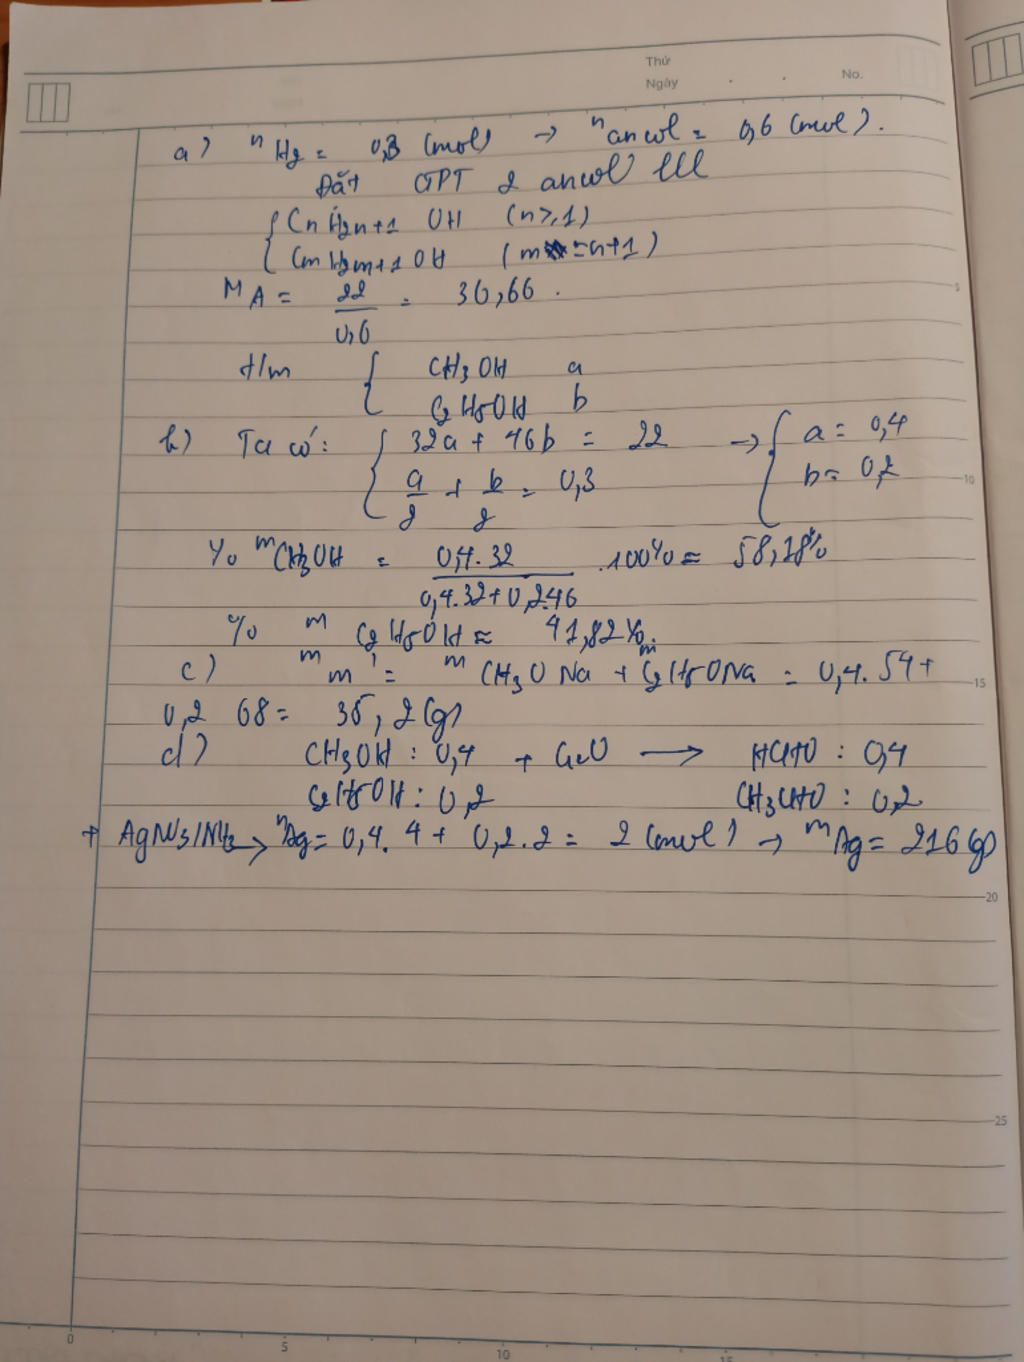 Thứ
Ngày
No.
a) nH2 = 0,3 (mol) → nancol = 0,6 (mol).
Đặt CTPT 2 ancol
{ CnH2n+1 OH (n≥1)
{ CmH2m+1 OH (m = n+1)
MA = 22/0,6 = 36,66.
{ CH3OH a
{ C2H5OH b
b) Ta có: { 32a + 46b = 22 → { a = 0,4
{ a/2 + b/2 = 0,3 { b = 0,2
% mCH3OH = 0,4.32/0,4.32+0,2.46 .100% = 58,18%
% m C2H5OH = 41,82%
c) m m' = m CH3ONa + m C2H5ONa = 0,4.54 +
0,2 68 = 35,2 (g)
d) CH3OH : 0,4 + CuO → HCHO : 0,4
C2H5OH : 0,2 CH3CHO : 0,2
+ AgNO3/NH3 → nAg = 0,4.4 + 0,2.2 = 2 (mol) → mAg = 216 (g)
5
10
15
20
25
0
5
10
15